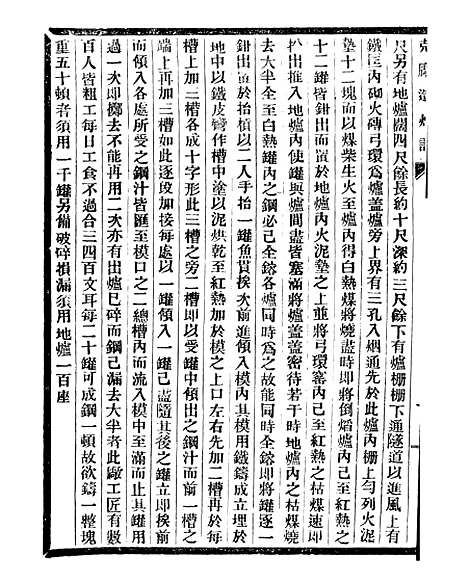 克虜造炮記
尺另有地爐闊四尺餘長約十尺深約三尺餘下有爐柵柵下通隧道以進風上有
鐵匡內砌火磚弓環爲爐蓋爐旁上界有三孔入烟通先於此爐內柵上勻列火泥
墊十二塊而以煤柴生火至爐內得白熱煤將燒盡時即將倒熖爐內已至紅熱之
十二罐皆鉗出而置於地爐內火泥墊之上重將弓環窰內已至紅熱之枯煤速即
扒出推入地爐內使罐與爐間盡皆塞滿將爐蓋蓋密待若干時地爐內之枯煤燒
去大半全至白熱罐內之鋼必已全鎔各爐同時爲之故能同時全鎔即將罐逐一
鉗出置於爐頂而以二人手抬一罐魚貫挨次前進傾入模內其模用鐵鑄成立埋於
地中以鐵皮彎作槽中塗以泥烘乾至紅熱於模之上口左右先加二槽再於每
槽上加三槽各成十字形此三槽即可以受罐中傾出之鋼汁而前一槽之
端上再加三槽如此逐段加接每處以一罐傾入一罐已盡隨其後之罐立即挨前
而傾入各處所受之鋼汁皆匯至模口之二總槽內而流入模中至滿而止其罐用
過一次即擲去不能再用二次亦有出爐已碎而鋼已漏去大半者此廠工匠有數
百人皆粗工每日工食不過合三四百文耳每二十罐可成鋼一頓故欲鑄一整塊
重五十頓者須用一千罐另備破碎損漏須用地爐一百座